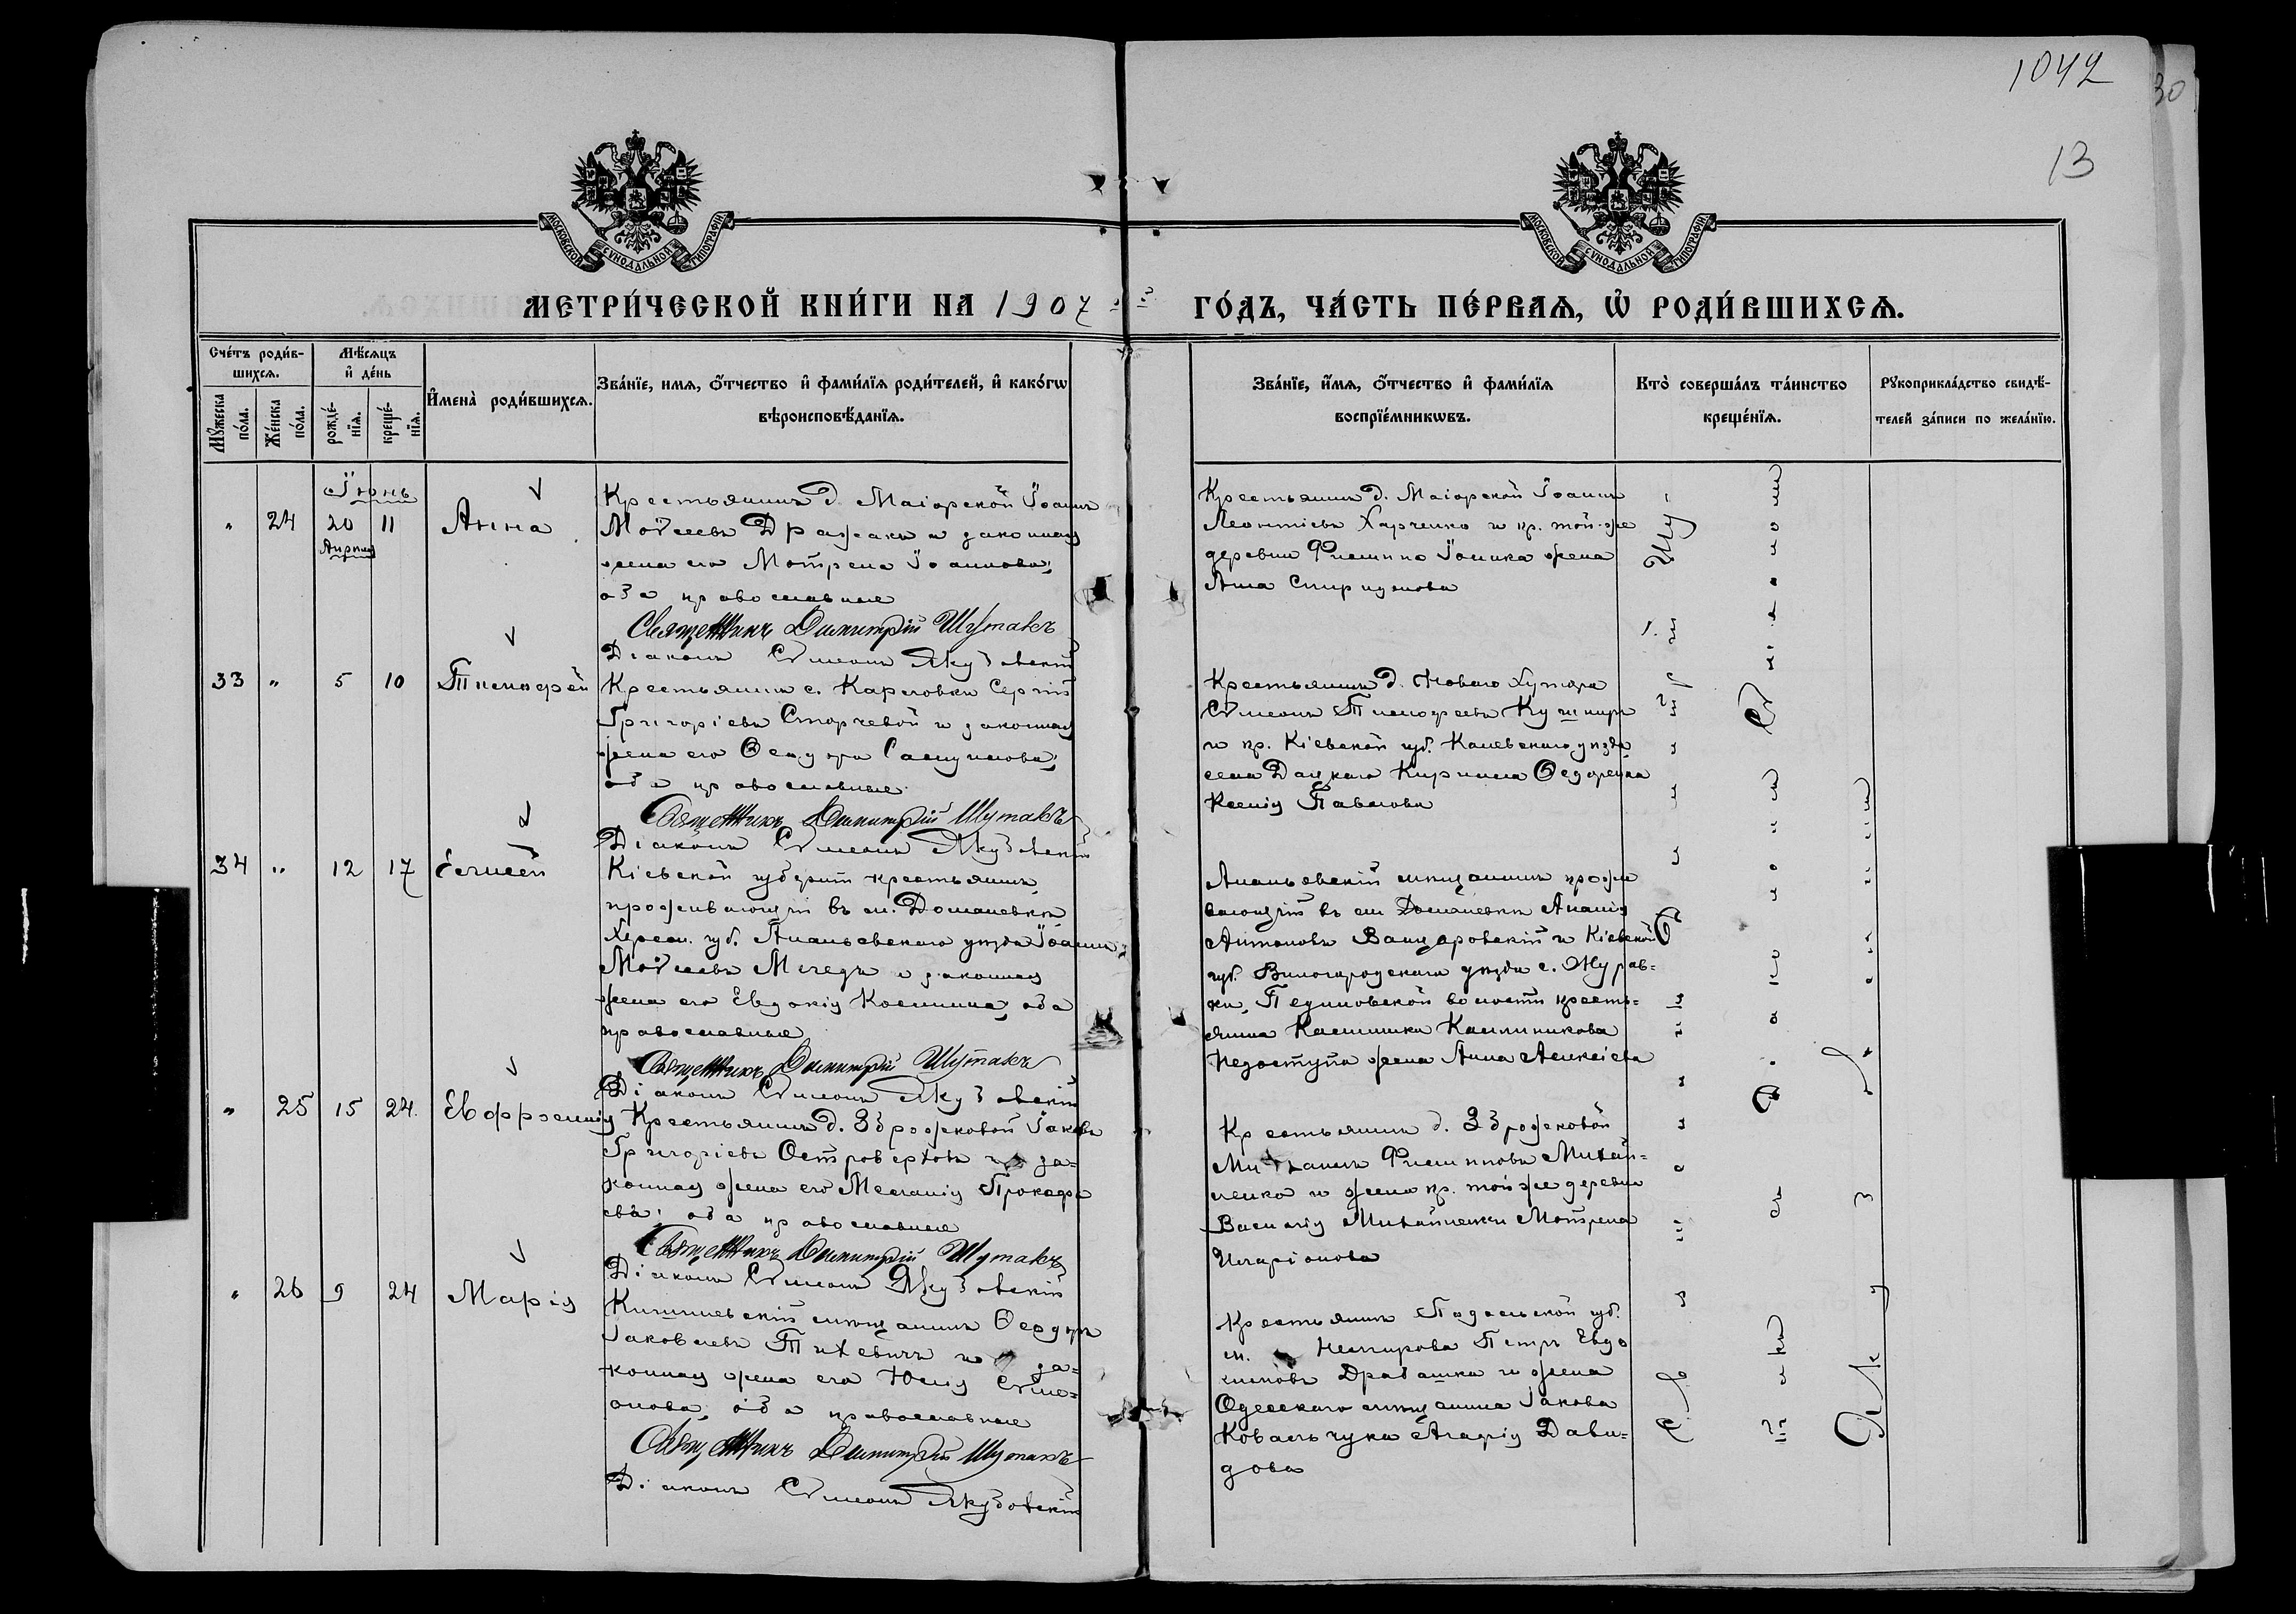 1042
30
13
МОСКОВСКОЙ СѴНОДАЛЬНОЙ ТИПОГРАФІИ
МОСКОВСКОЙ СѴНОДАЛЬНОЙ ТИПОГРАФІИ
МЕТРИ́ЧЕСКОЙ КНИ́ГИ НА 1907 ГО́ДЪ, ЧА́СТЬ ПЕ́РВАѦ, Ѡ҆ РОДИ́ВШИХСѦ.
Сче́тъ роди́в-
шихсѧ.
Мꙋ́жеска по́ла.
Же́нска по́ла.
Мѣ́сѧцъ
и҆ де́нь
рожде́-
нїѧ.
креще́-
нїѧ.
И҆мена̀ роди́вшихсѧ.
Зва́нїе, имѧ, ѻ҆́тчество и҆ фами́лїѧ роди́телей, и҆ како́гѡ
вѣроисповѣ́данїѧ.
Зва́нїе, и҆́мѧ, ѻ҆́тчество и҆ фами́лїѧ
воспрїе́мникѡвъ.
Кто̀ соверша́лъ та́инство
креще́нїѧ.
Рꙋкоприкла́дство свидѣ́-
телей за́писи по жела́нїю.
Іюнь
" 24 20 11 Анна
Апрѣля
Крестьянинъ д. Маіорской Іоаннъ
Мойсеевъ Дражакъ и законная
жена его Мотрена Іоаннова,
оба православные
Священникъ Димитрій Шутакъ
Діаконъ Симеонъ Якубовскій
Крестьянинъ д. Маіорской Іоаннъ
Леонтіевъ Харченко и кр. той-же
деревни Филиппа Гомика жена
Анна Спиридонова
33 " 5 10 Тимофей
Крестьянинъ с. Карловки Сергій
Григоріевъ Сторчевой и законная
жена его Ѳеодора
оба православные.
Священникъ Димитрій Шутакъ
Діаконъ Симеонъ Якубовскій
Крестьянинъ д. Новаго Хутора
Симеонъ Тимофеевъ Кушниръ
и кр. Кіевской губ. Каневскаго уѣзда
села Дацкаго Кирилла Ѳедоренка
Ксенія Павлова
34 " 12 17 Елисей
Кіевской губерніи крестьянинъ,
проживающій въ м. Доманевкѣ
Херсон. губ. Ананьевскаго уѣзда Іоаннъ
Мойсеевъ и законная
жена его Евдокія Космина, оба
православные
Священникъ Димитрій Шутакъ
Діаконъ Симеонъ Якубовскій
Ананьевскій мѣщанинъ прожи
вающій въ м. Доманевкѣ Ананія
Антоновъ и Кіевской
губ. уѣзда с. Журав-
ки, волости кресть-
янина Каллиника Каллиникова
Недоступа жена Анна Алексіева
" 25 15 24 Евфросинія
Крестьянинъ д. Зброжковой Іаковъ
Григоріевъ Островерховъ и за-
конная жена его Меланія Прокофі
ева; оба православные
Священникъ Димитрій Шутакъ
Діаконъ Симеонъ Якубовскій
Крестьянинъ д. Зброжковой
Михаилъ Филипповъ Михай-
ленко и жена кр. той же деревни
Василія Михайленки Мотрена
Иларіонова
" 26 9 24 Марія
Кишиневскій мѣщанинъ Ѳеодоръ
Іаковлевъ Тихевичъ и за-
конная жена его Юлія Симе-
онова, оба православные
Священникъ Димитрій Шутакъ
Діаконъ Симеонъ Якубовскій
Крестьянинъ Подольской губ.
м. Немирова Петръ Евдо
кимовъ Драбашка и жена
Одесскаго мѣщанина Іакова
Ковальчука Агарія Дави-
дова
Священникъ Димитрій Шу
Діаконъ Симеон
Якубовскій